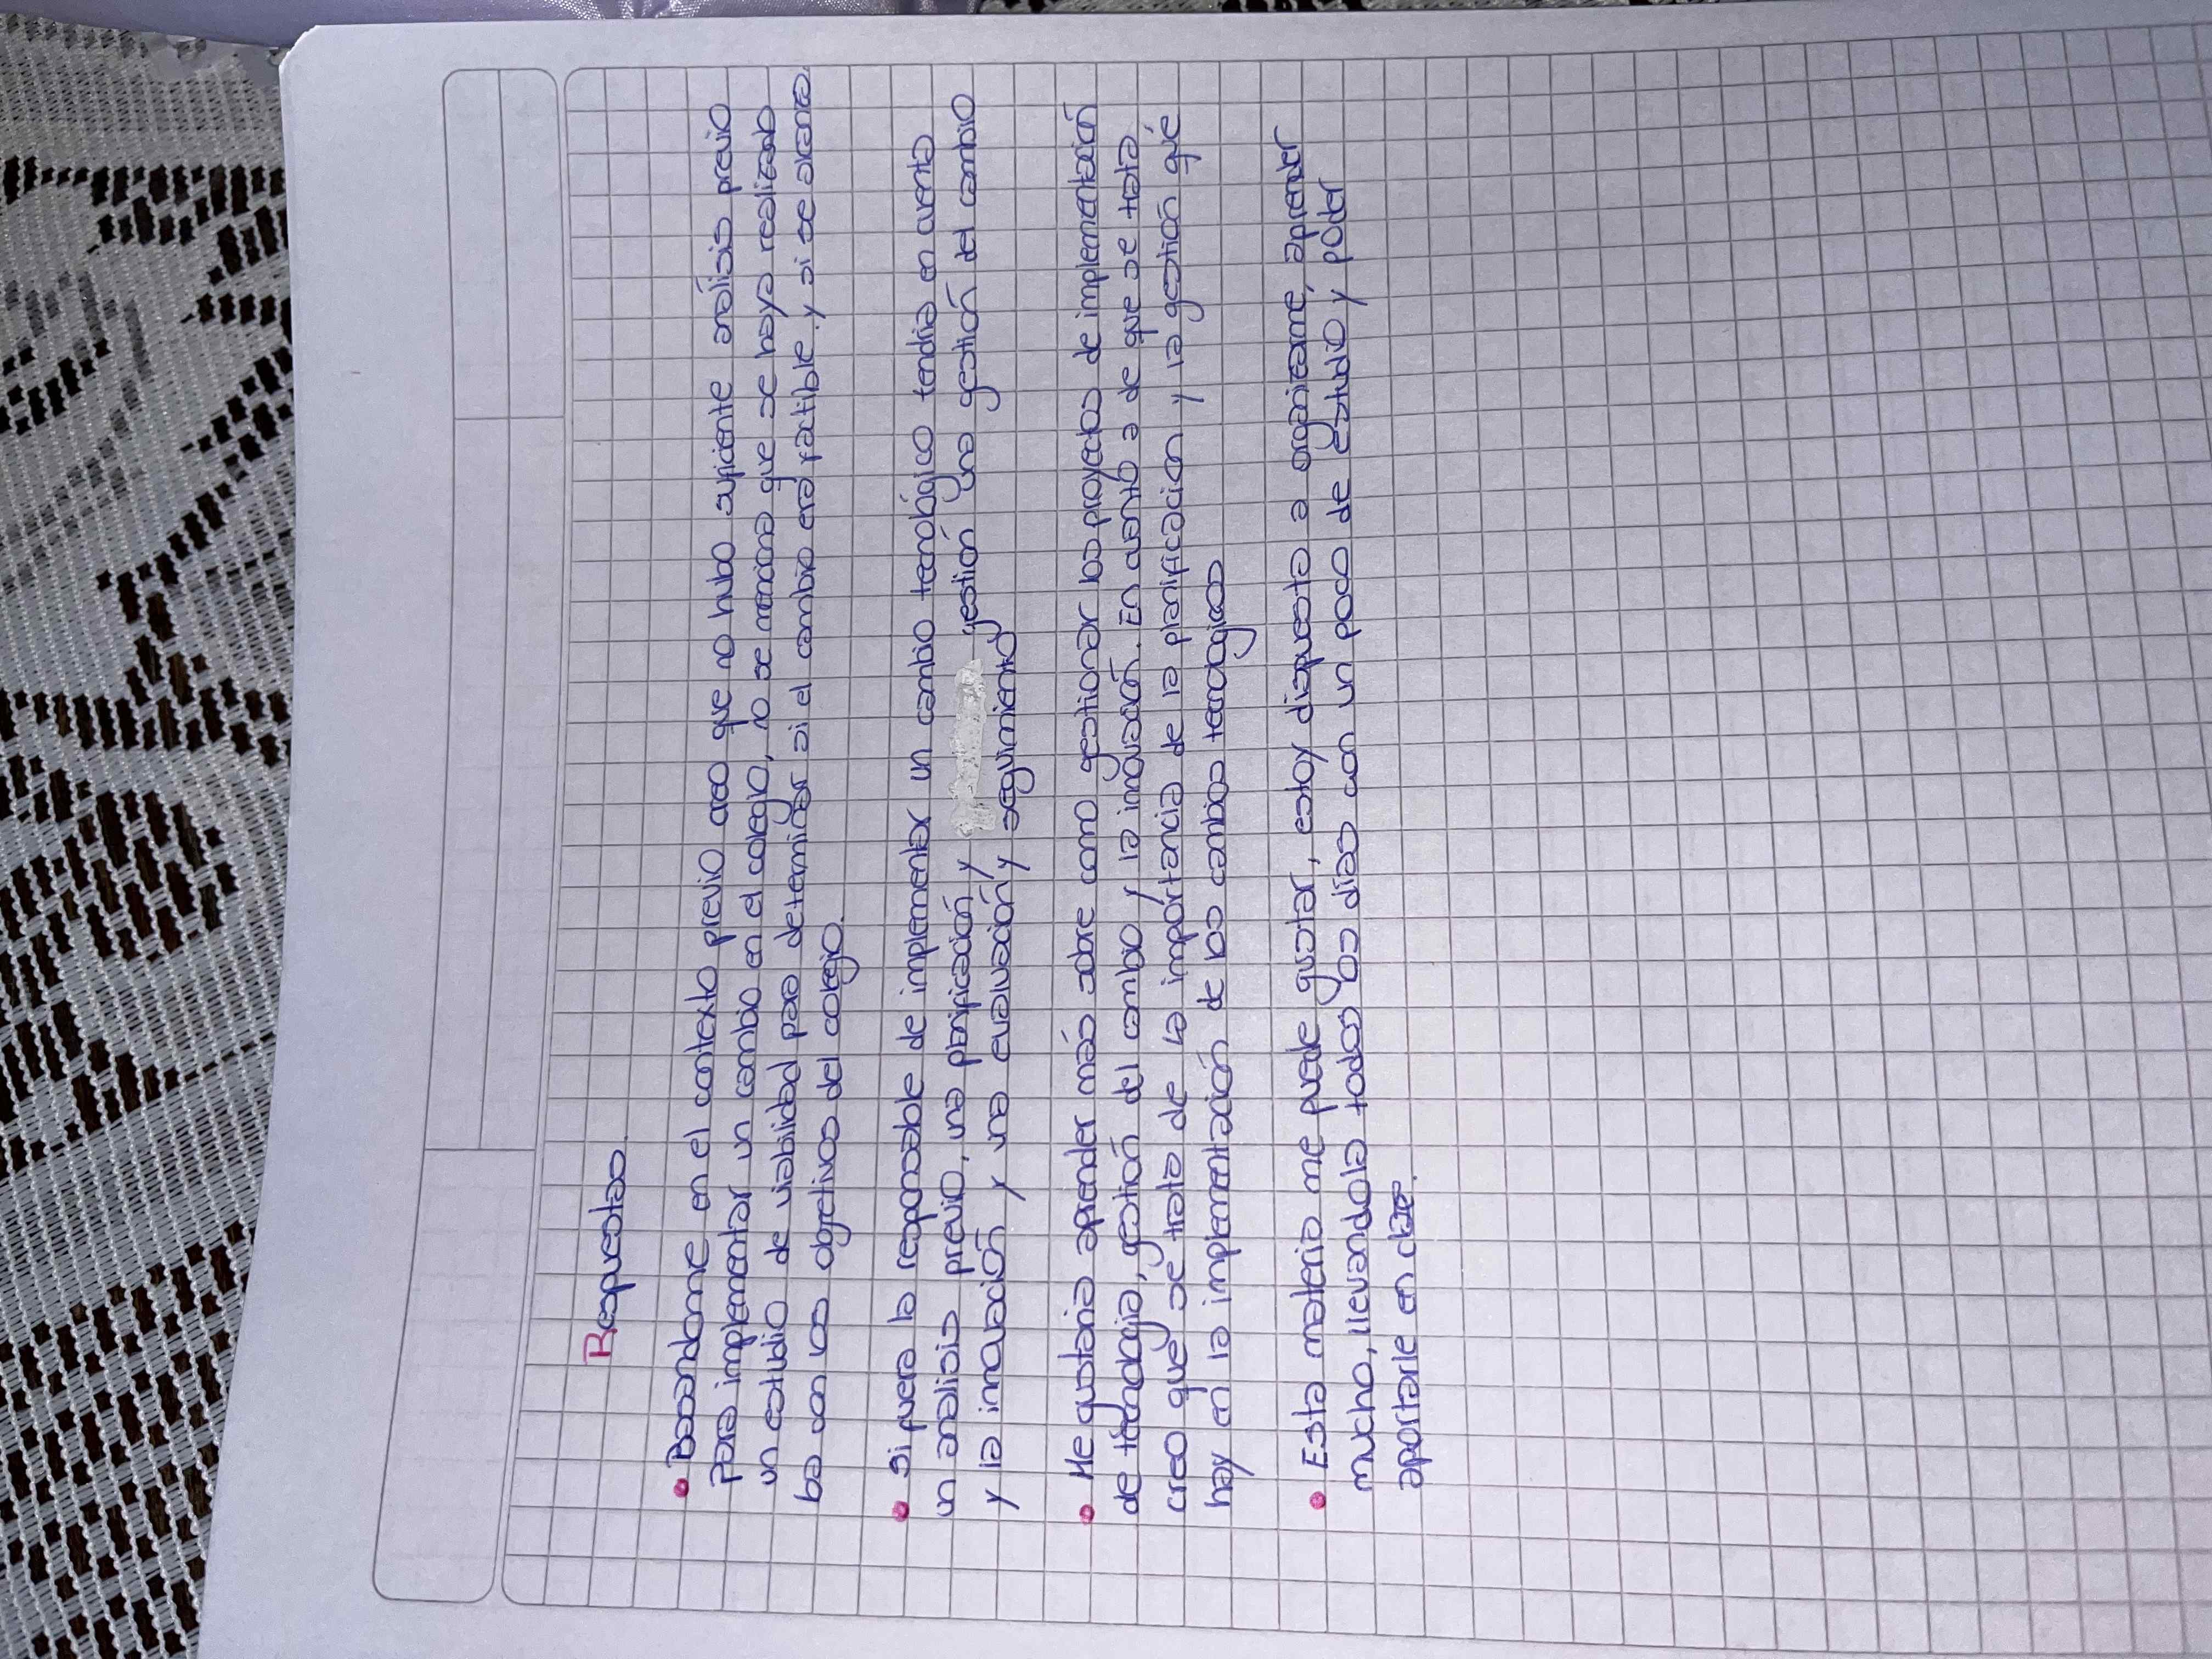 Respuestas.
• Basandome en el contexto previo creo que no hubo suficiente análisis previo
para implementar un cambio en el colegio, no se menciona que se haya realizado
un estudio de viabilidad para determinar si el cambio era factible y si se alcanza
ba con los objetivos del colegio.
• Si fuera la responsable de implementar un cambio tecnológico tendria en cuenta
un analisis previo, una planificación y gestión una gestión del cambio
y la innovación y una evaluación y seguimiento
• Me gustaria aprender más sobre como gestionar los proyectos de implementación
de tecnología, gestión del cambio y la innovación. En cuanto a de que se trata
creo que se trata de la importancia de la planificacion y la gestión qué
hay en la implementación de los cambios tecnologicos
• Esta materia me puede gustar, estoy dispuesta a organizarme, aprender
mucho, llevandola todos los dias con un poco de estudio y poder
aportarle en clase.